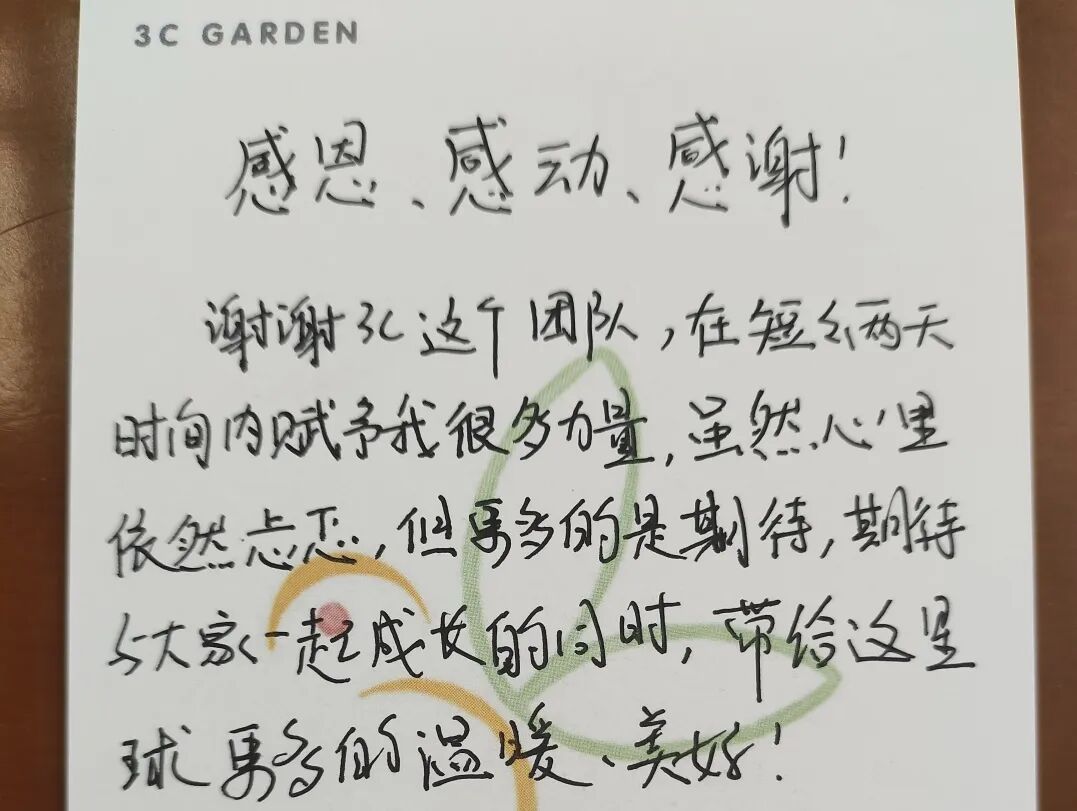 3C GARDEN
感恩、感动、感谢！
谢谢3C这个团队，在短短两天
时间内赋予我很多力量，虽然心里
依然忐忑，但更多的是期待，期待
与大家一起成长的同时，带给这里
球更多的温暖、美好！